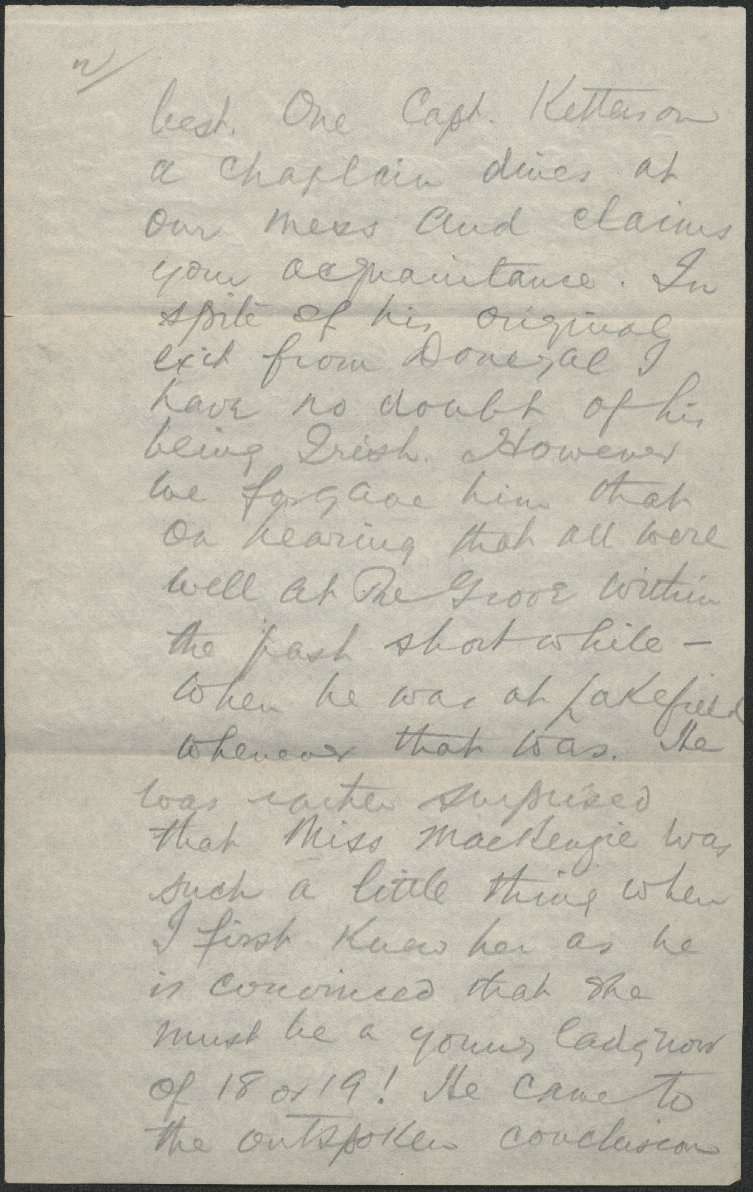 best. One Capt. Ketterson
a chaplain dines at
our mess and claims
your acquaintance. In
spite of his original
exit from Donegal I
have no doubt of his
being Irish. However
we forgave him that
on hearing that all were
well at The Grove within
the past short while –
when he was at Lakefield
whenever that was. He
was rather surprised
that Miss MacKenzie was
such a little thing when
I first knew her as he
is convinced that she
must be a young lady now
of 18 or 19! He came to
the outspoken conclusion